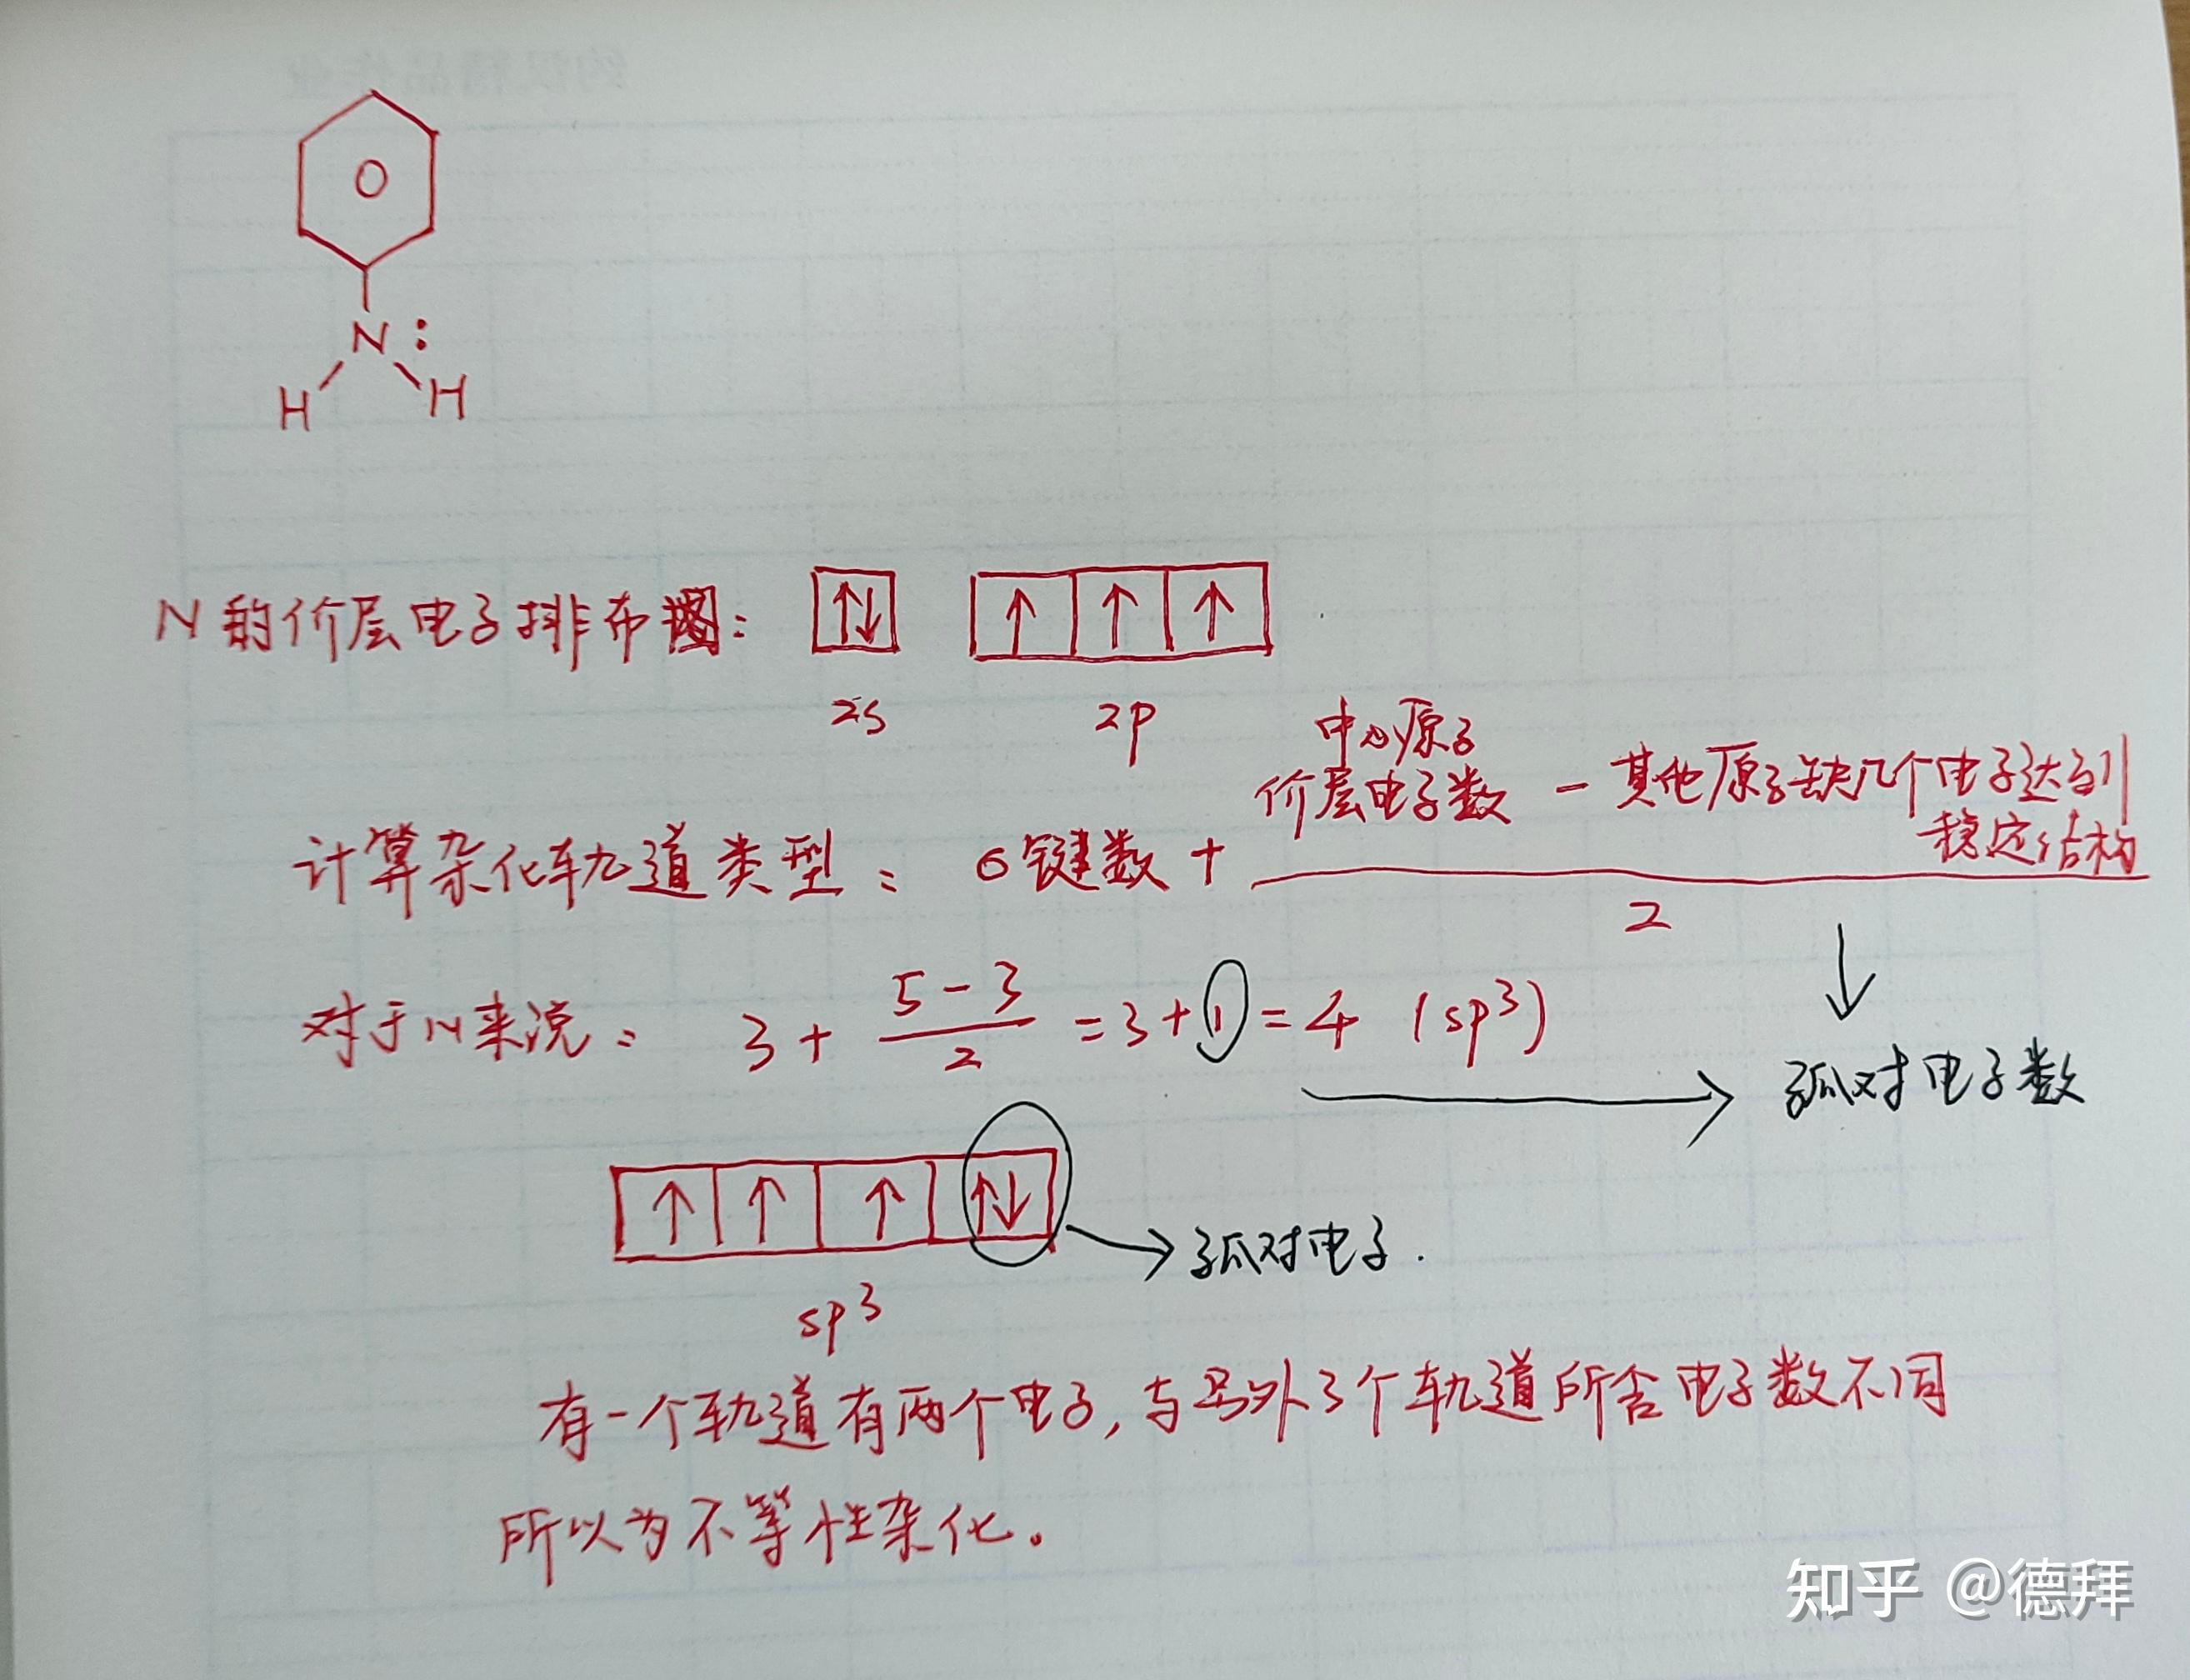 N :
H H
N的价层电子排布图: ↑↓ ↑ ↑ ↑
2s 2p
中心原子
价层电子数 - 其他原子缺几个电子达到
稳定结构
计算杂化轨道类型: σ键数 +
2
对于N来说: 3 + (5-3)/2 = 3+1 = 4 (sp³)
孤对电子数
↑ ↑ ↑ ↑↓ → 孤对电子.
sp³
有一个轨道有两个电子,与另外3个轨道所含电子数不同
所以为不等性杂化。
知乎 @德拜